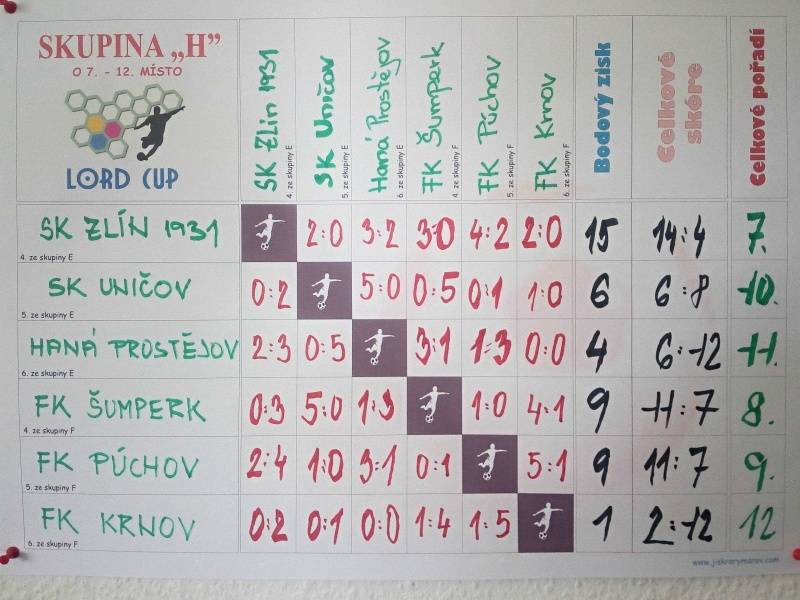 SKUPINA „H"
O 7. - 12. MÍSTO
LORD CUP
SK Zlín 1931
4. ze skupiny E
SK Uničov
5. ze skupiny E
Haná Prostějov
6. ze skupiny E
FK Šumperk
4. ze skupiny F
FK Púchov
5. ze skupiny F
FK Krnov
6. ze skupiny F
Bodový zisk
Celkové skóre
Celkové pořadí
SK ZLÍN 1931 2:0 3:2 3:0 4:2 2:0 15 14:4 7.
4. ze skupiny E
SK UNIČOV 0:2 5:0 0:5 0:1 1:0 6 6:8 10.
5. ze skupiny E
HANÁ PROSTĚJOV 2:3 0:5 3:1 1:3 0:0 4 6:12 11.
6. ze skupiny E
FK ŠUMPERK 0:3 5:0 1:3 1:0 4:1 9 11:7 8.
4. ze skupiny F
FK PÚCHOV 2:4 1:0 3:1 0:1 5:1 9 11:7 9.
5. ze skupiny F
FK KRNOV 0:2 0:1 0:0 1:4 1:5 1 2:12 12
6. ze skupiny F
www.jiskrarymarov.com